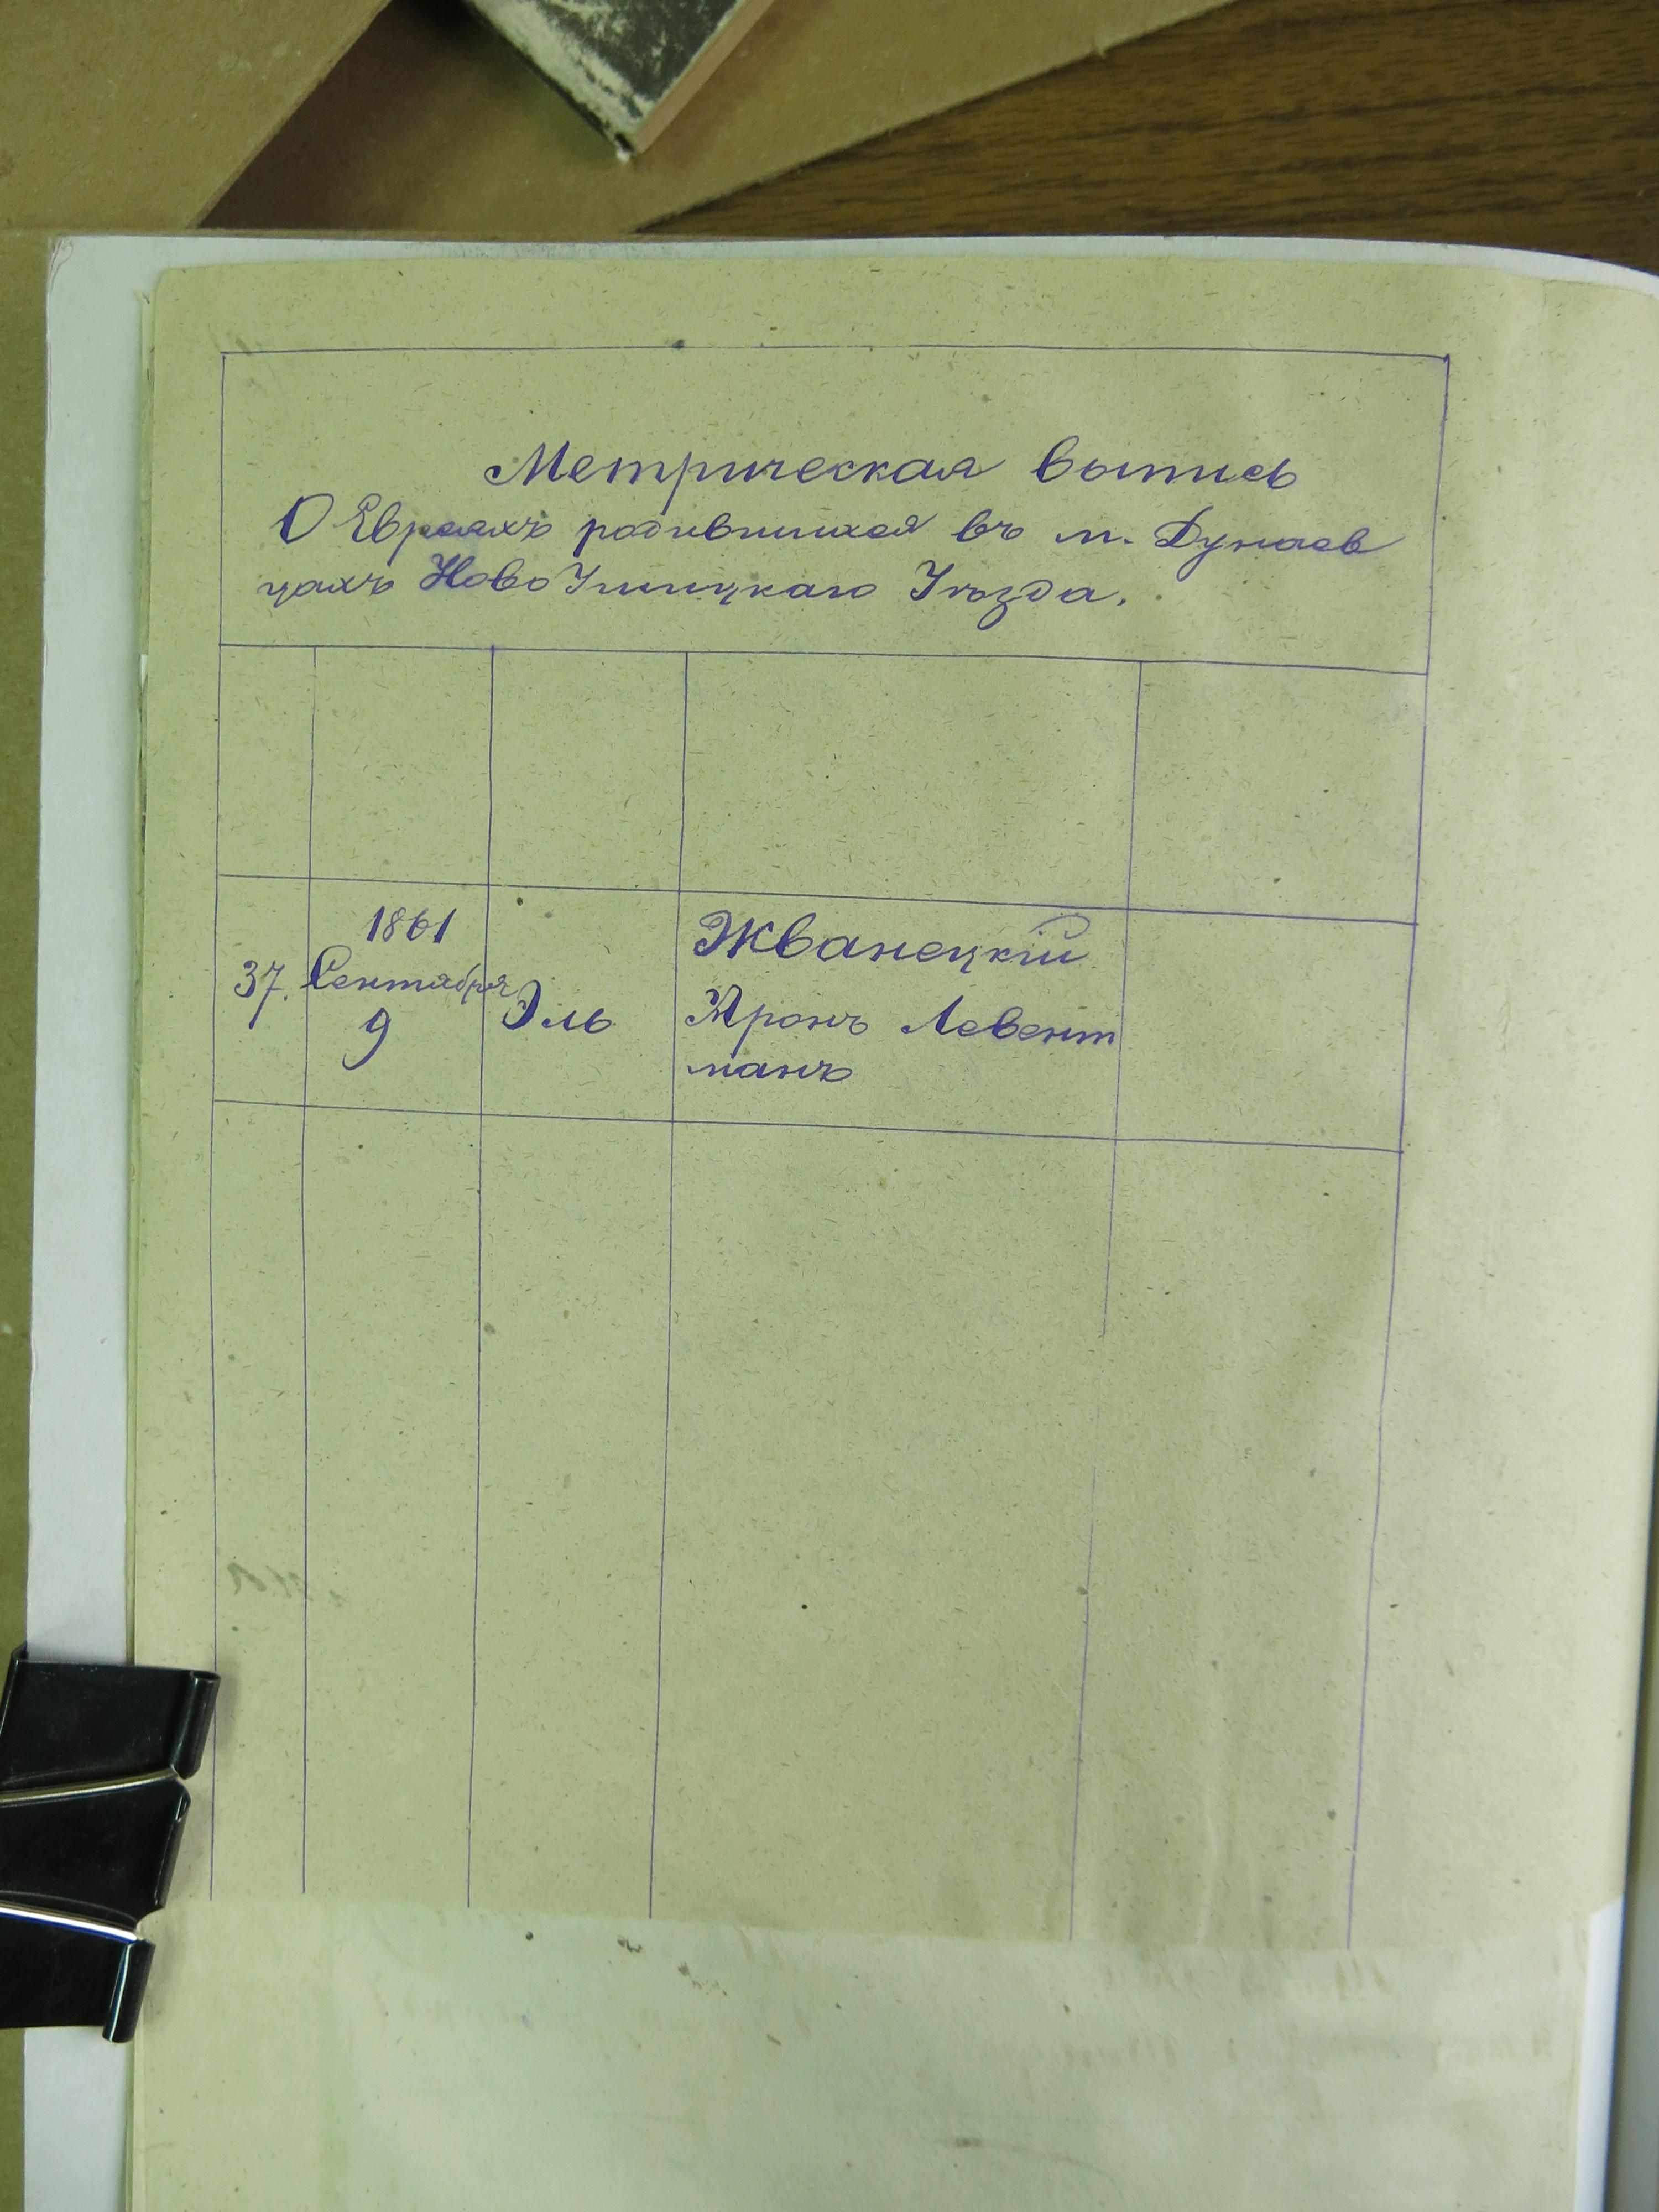 Метрическая выпись
О Евреяхъ родившихся въ м. Дунаев
цахъ Ново Ушицкаго Уѣзда.
37. 1861 Сентября 9
Эль
Жванецкій
Аронъ Левент
манъ